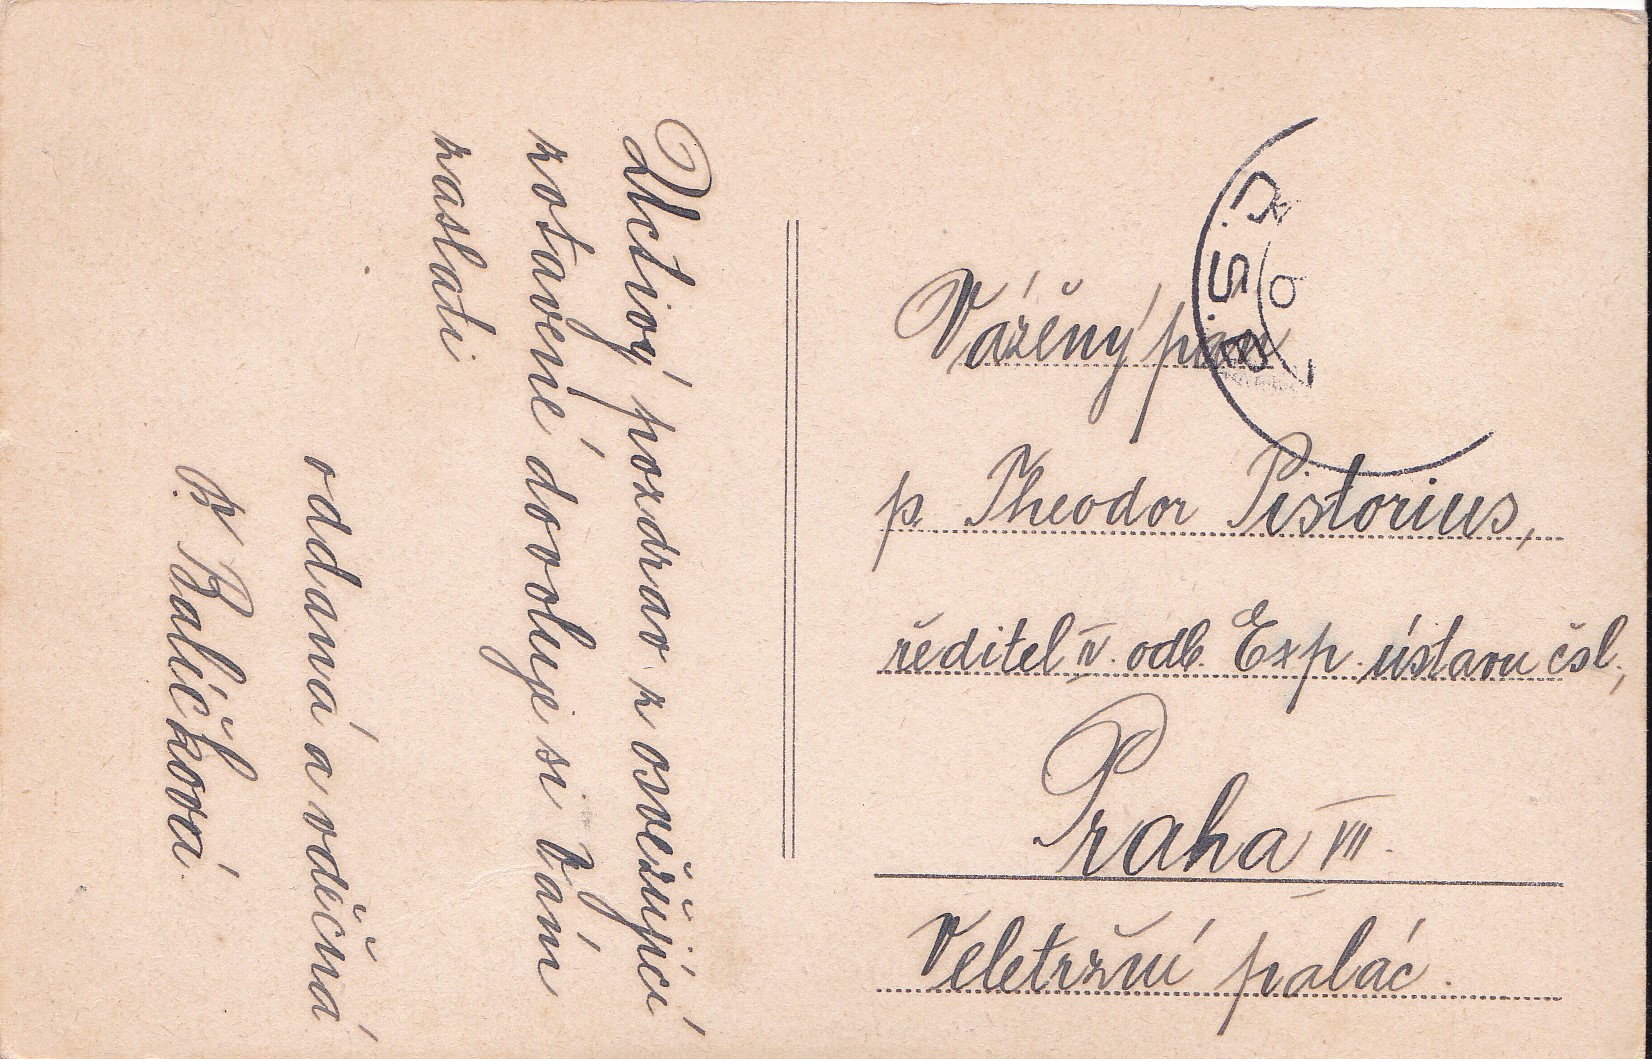 Uctivý pozdrav z osvěžující
zotavené dovoluje si Vám
zaslati
oddaná a vděčná
K Balíčková.
Vážený pan
p. Theodor Pistorius,
ředitel IV. odb. Exp. ústavu čsl.,
Praha VII.
Veletržní palác.